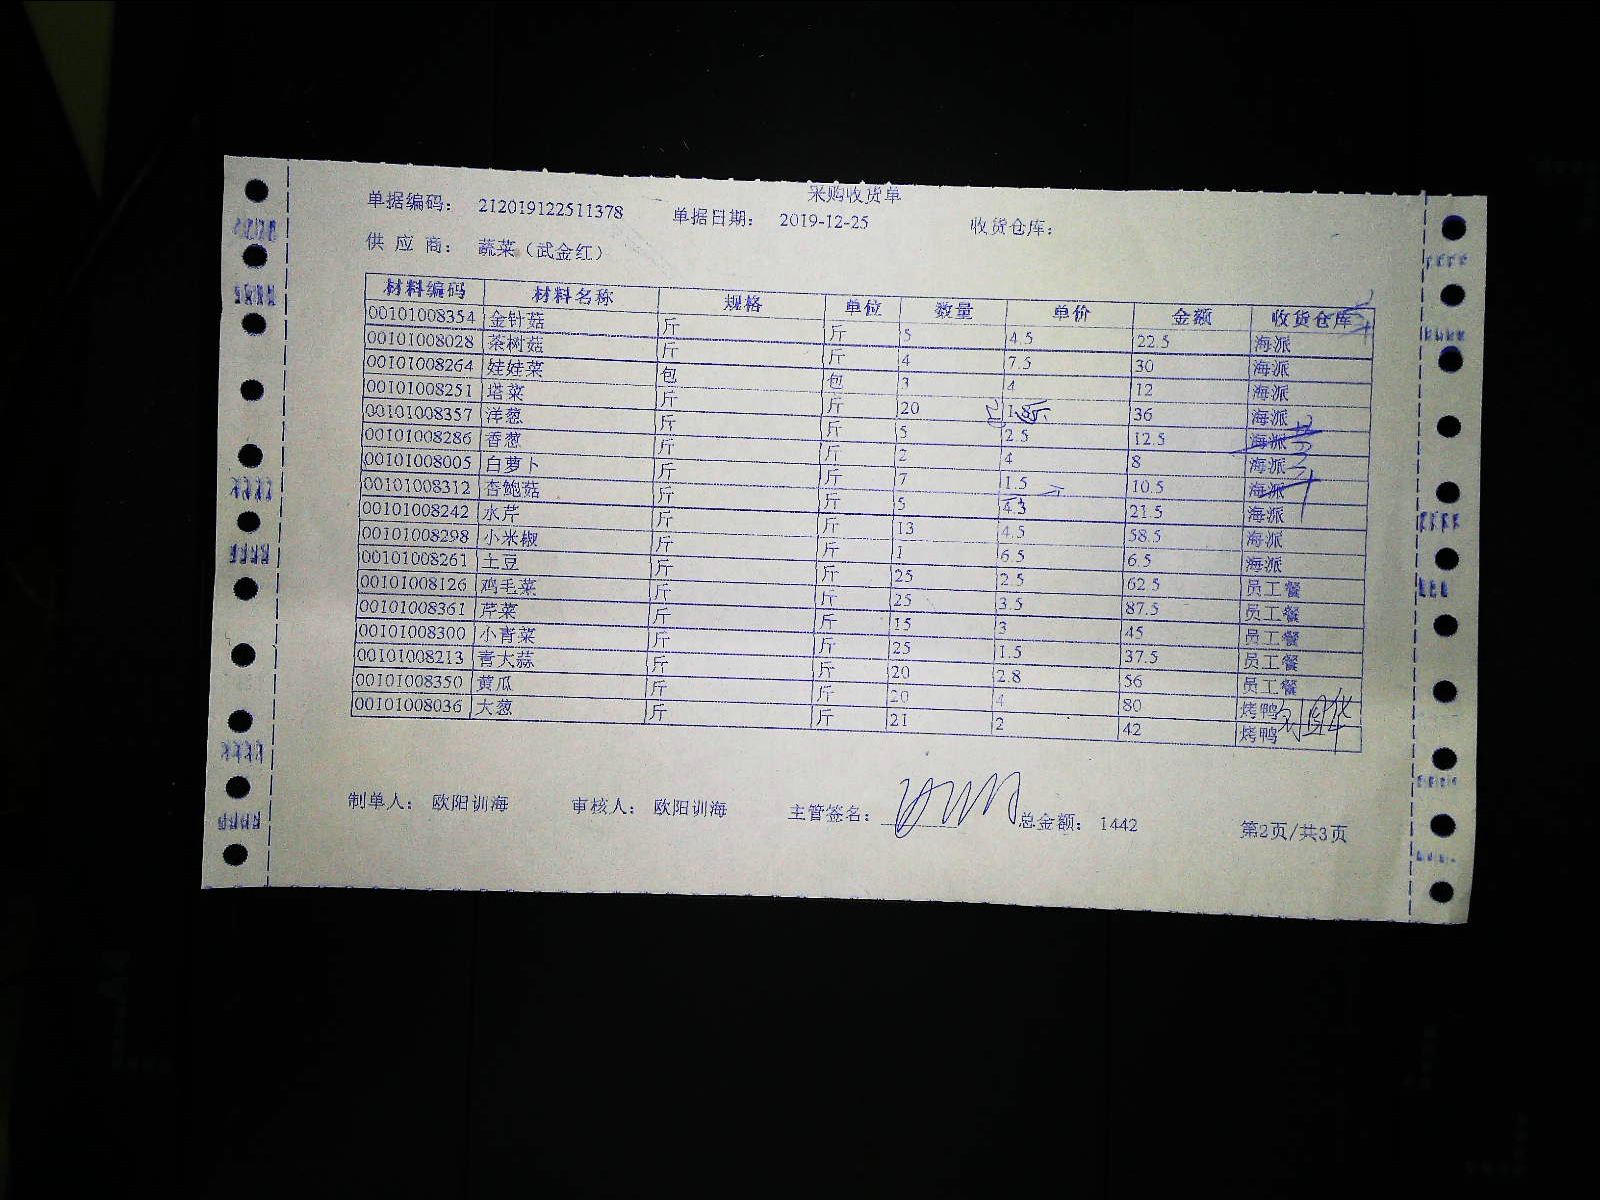 采购收货单
单据编码： 212019122511378 单据日期： 2019-12-25 收货仓库：
供 应 商： 蔬菜（武金红）
材料编码 材料名称 规格 单位 数量 单价 金额 收货仓库
00101008354 金针菇 斤 斤 5 4.5 22.5 海派
00101008028 茶树菇 斤 斤 4 7.5 30 海派
00101008264 娃娃菜 包 包 3 4 12 海派
00101008251 塔菜 斤 斤 20 36 海派
00101008357 洋葱 斤 斤 5 2.5 12.5 海派
00101008286 香葱 斤 斤 2 4 8 海派
00101008005 白萝卜 斤 斤 7 1.5 10.5 海派
00101008312 杏鲍菇 斤 斤 5 4.3 21.5 海派
00101008242 水芹 斤 斤 13 4.5 58.5 海派
00101008298 小米椒 斤 斤 1 6.5 6.5 海派
00101008261 土豆 斤 斤 25 2.5 62.5 员工餐
00101008126 鸡毛菜 斤 斤 25 3.5 87.5 员工餐
00101008361 芹菜 斤 斤 15 3 45 员工餐
00101008300 小青菜 斤 斤 25 1.5 37.5 员工餐
00101008213 青大蒜 斤 斤 20 2.8 56 员工餐
00101008350 黄瓜 斤 斤 20 4 80 烤鸭
00101008036 大葱 斤 斤 21 2 42 烤鸭
制单人： 欧阳训海 审核人： 欧阳训海 主管签名： 总金额： 1442 第2页/共3页